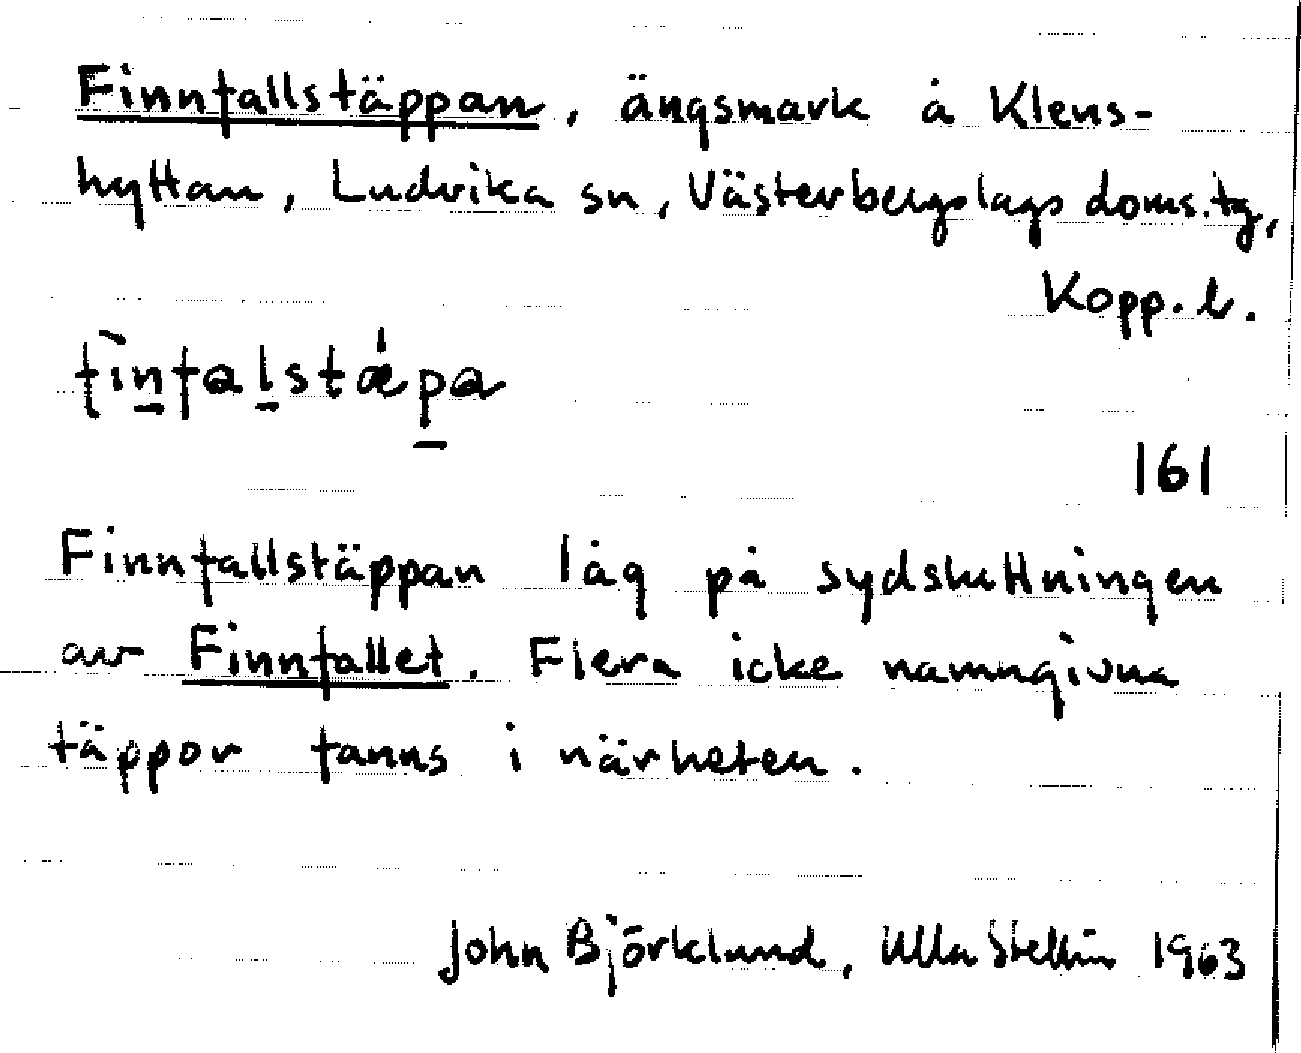 Finnfallstäppan, ängsmark å Klens-
hyttan, Ludvika sn, Västerbergslags doms.tg,
Kopp. l.
fìn̲fal̲stǽp̲a
161
Finnfallstäppan låg på sydsluttningen
av Finnfallet. Flera icke namngivna
täppor fanns i närheten.
John Björklund, Ulla Stellin 1963